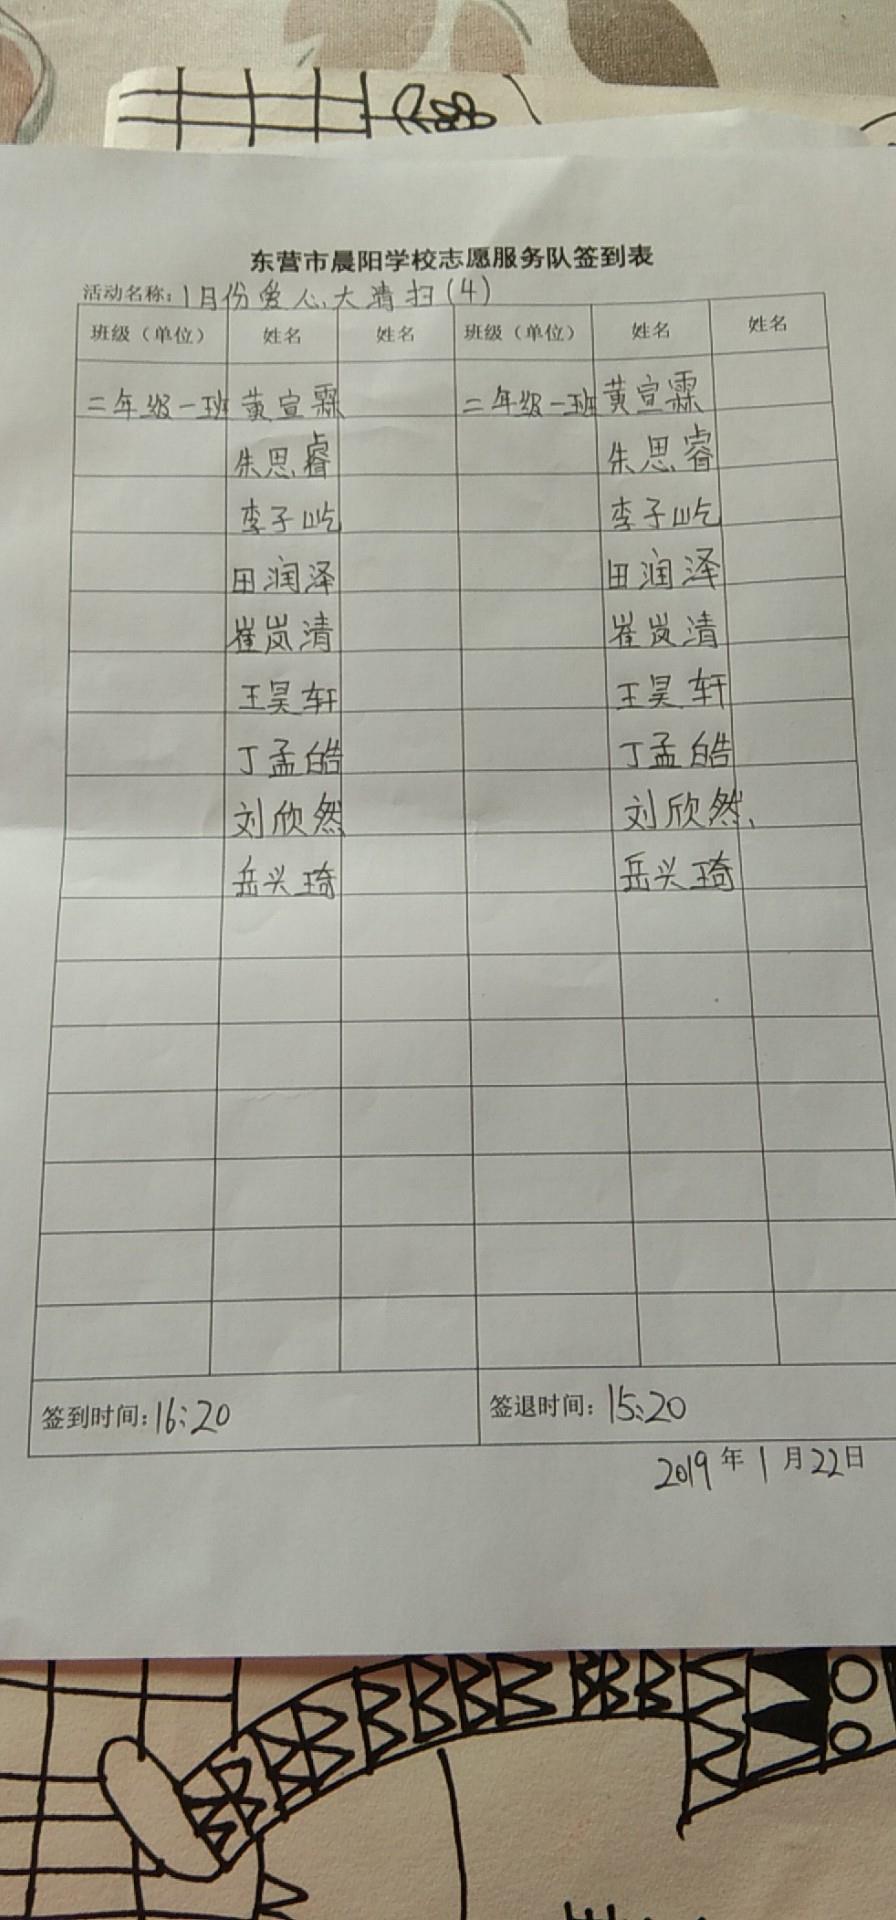 东营市晨阳学校志愿服务队签到表
活动名称：1月份爱心大清扫(4)
班级（单位） 姓名 姓名 班级（单位） 姓名 姓名
二年级一班 黄宣霖 二年级一班 黄宣霖
朱思睿 朱思睿
李子屹 李子屹
田润泽 田润泽
崔岚清 崔岚清
王昊轩 王昊轩
丁孟皓 丁孟皓
刘欣然 刘欣然、
岳兴琦 岳兴琦
签到时间：16:20 签退时间：15:20
2019年1月22日